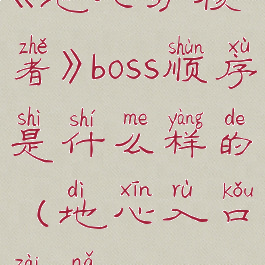 zhě shùn xù
者》boss顺序
shì shí me yàng de
是什么样的
dì xīn rù kǒu
（地心入口
zài nǎ